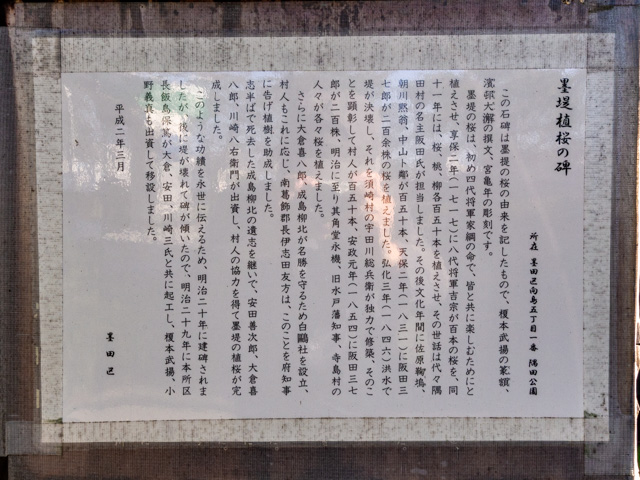 墨堤植桜の碑
所在 墨田区向島五丁目一番 隅田公園
この石碑は墨堤の桜の由来を記したもので、榎本武揚の篆額、
濱邨大澥の撰文、宮亀年の彫刻です。
墨堤の桜は、初め四代将軍家綱の命で、皆と共に楽しむためにと
植えさせ、享保二年(一七一七)に八代将軍吉宗が百本の桜を、同
十一年には、桜、桃、柳各百五十本を植えさせ、その世話は代々隅
田村の名主阪田氏が担当しました。その後文化年間に佐原鞠塢、
朝川黙翁、中山卜鄰が百五十本、天保二年(一八三一)に阪田三
七郎が二百余株の桜を植えました。弘化三年(一八四六)洪水で
堤が決壊し、それを須崎村の宇田川総兵衛が独力で修築、そのこ
とを顕彰して村人が百五十本、安政元年(一八五四)に阪田三七
郎が二百株、明治に至り其角堂永機、旧水戸藩知事、寺島村の
人々が各々桜を植えました。
さらに大倉喜八郎、成島柳北が名勝を守るため白鷗社を設立、
村人もこれに応じ、南葛飾郡長伊志田友方は、このことを府知事
に告げ植樹を助成しました。
志半ばで死去した成島柳北の遺志を継いで、安田善次郎、大倉喜
八郎、川崎八右衛門が出資し、村人の協力を得て墨堤の植桜が完
成しました。
このような功績を永世に伝えるため、明治二十年に建碑されま
したが、後、堤が壊れて碑が傾いたので、明治二十九年に本所区
長飯島保篤が大倉、安田、川崎三氏と共に起工し、榎本武揚、小
野義真も出資して移設しました。
平成二年三月
墨田区